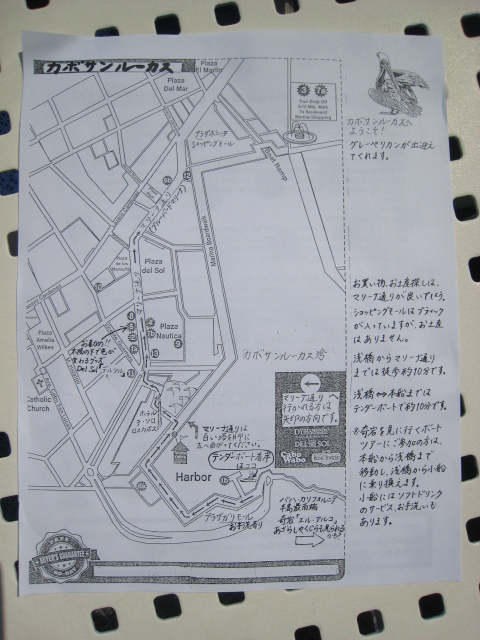 カボサンルーカス
Plaza
El Marlin
Plaza
Del Mar
3
Tour Drop Off
To Boulevard
Marina Shopping
カボサンルーカスへ
ようこそ!
グレーペリカンが出迎え
てくれます。
プラザボニータ
ショッピングモール
Boat Ramp
マリーナ通り
Marina Boardwalk
Plaza
del Sol
Plaza
Nautica
9
13
Plaza
Amelia
Wilkes
Catholic
Church
お勧め!!
Del Sol
11
カボサンルーカス港
お買い物、お土産探しは、
マリーナ通りが良いでしょう。
ショッピングモールはブティック
が入っていますが、お土産
はありません。
浅橋からマリーナ通り
までは徒歩約10分です。
浅橋⇔本船までは
テンダーボートで約10分です。
※奇岩を見に行くボート
ツアーにご参加の方は、
本船から浅橋まで
移動し、浅橋から小船
に乗り換えます。
小船にはソフトドリンク
のサービス、お手洗いも
あります。
マリーナ通りへ
行かれる方は
矢印の方向です。
DEL SOL
Cabo
Wabo
ホテル
マリーナ通りは
白い
左へ曲がってください。
テンダーボート着岸
はココ
Harbor
プラザガリモール
お手洗有り
バハ・カリフォルニア
半島最南端
奇岩 "エル・アルコ"
BUYER'S GUARANTEE